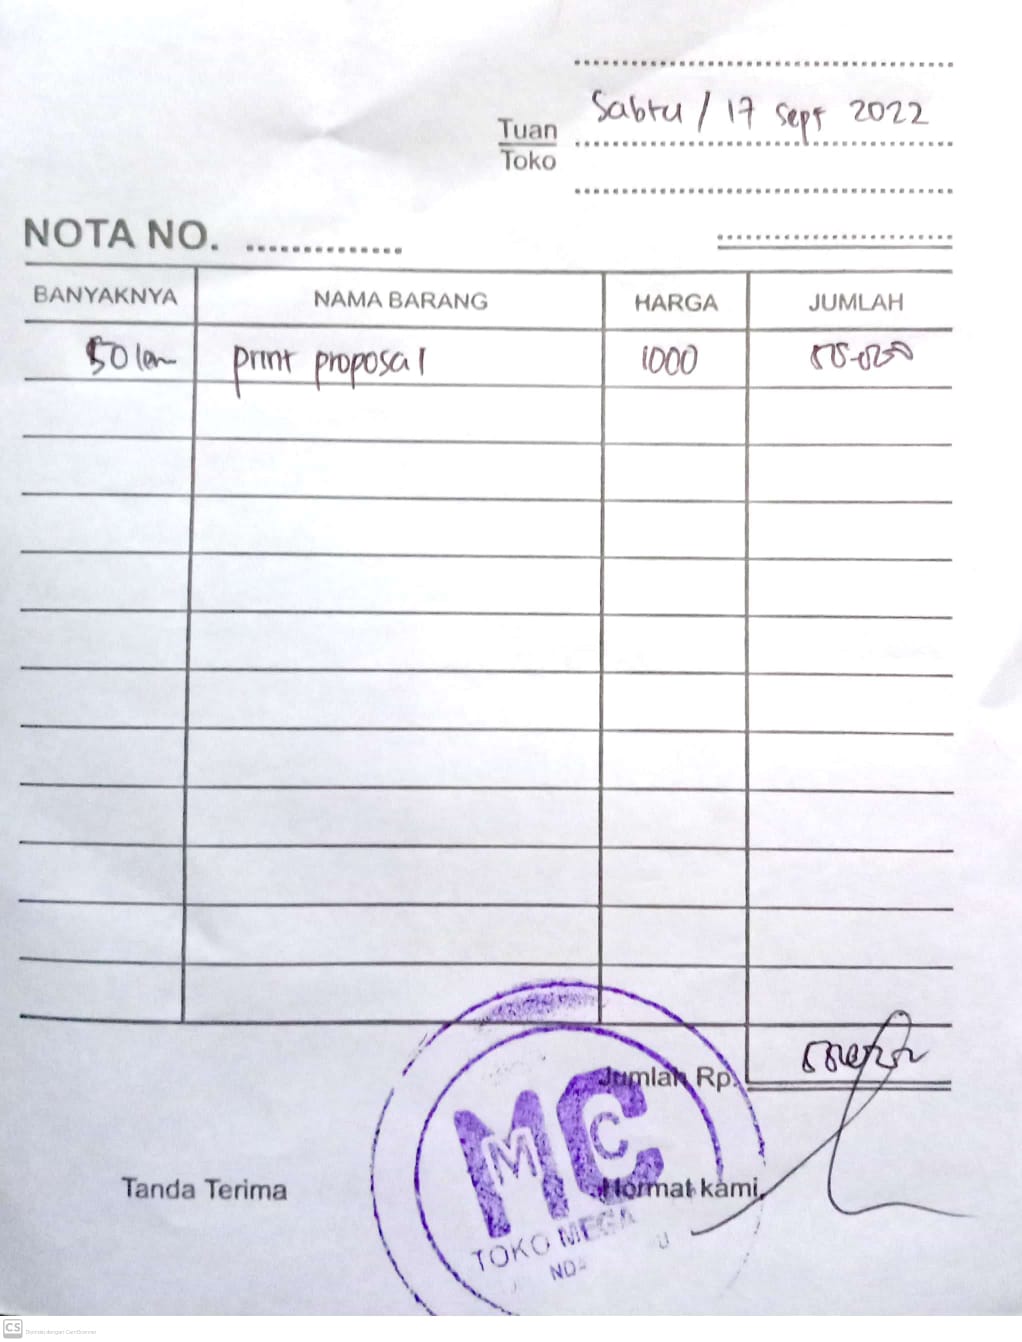 Sabtu / 17 Sept 2022
Tuan
Toko
NOTA NO.
BANYAKNYA NAMA BARANG HARGA JUMLAH
50 lem print proposal 1000
Jumlah Rp.
Tanda Terima Hormat kami,
MC
MC
TOKO MEGA
CS Dipindai dengan CamScanner